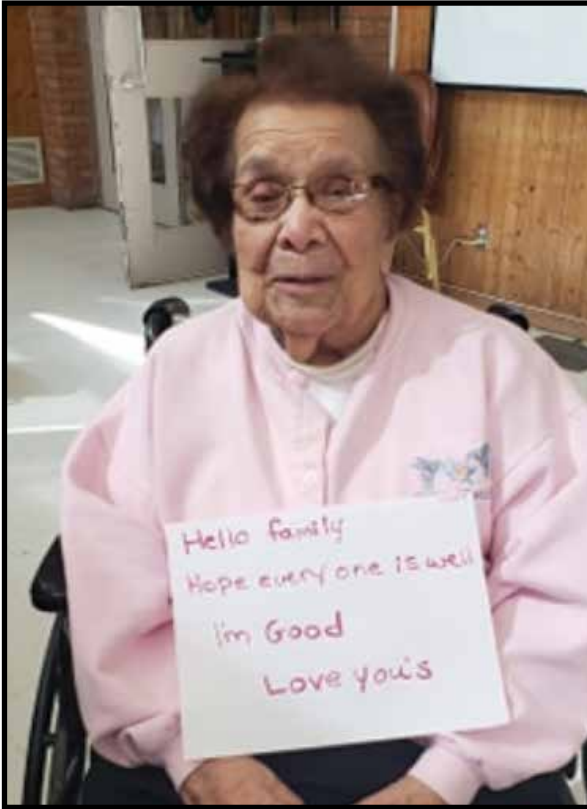 Hello family
Hope every one is well
I'm Good
Love you's